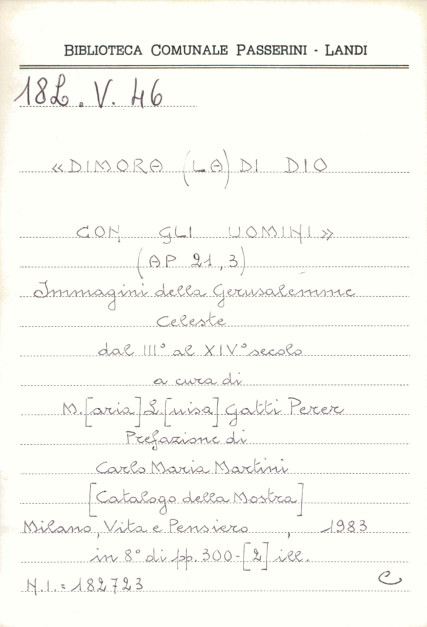 BIBLIOTECA COMUNALE PASSERINI - LANDI
18L. V. 46
«DIMORA (LA) DI DIO
CON GLI UOMINI»
(AP 21,3)
Immagini della Gerusalemme
Celeste
dal III° al XIV° secolo
a cura di
M.[aria] L.[uisa] Gatti Perer
Prefazione di
Carlo Maria Martini
[Catalogo della Mostra]
Milano, Vita e Pensiero , 1983
in 8° di pp. 300-[2] ill.
N.I. = 182723 C